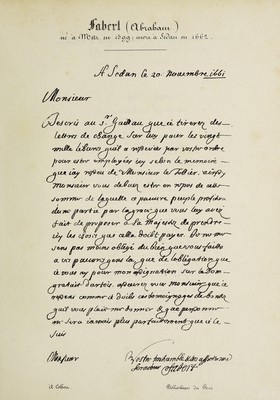 Fabert (Abraham)
né à Metz en 1599; mort à Sedan en 1662.
A Sedan le 20. novembre 1661
Monsieur
J'escris au Sr. que ie tireray des
lettres de change sur luy pour les vingt
mille liures quil a par vostre ordre
pour estre employées icy selon le memoire
que iay de Monsieur le Tellier, ainsy
monsieur vous debuez estre en repos de
somme de laquelle ce pauure peuple
par la grace que vous luy avez
fait de proposer à Sa Majesté de prendre
icy les choses que elle doibt payer. Je ne me
sens pas moins obligé du bien que vous faites
a ces pauures gens la, que de l'obligation que
ie vous ay pour mon assignation sur le don
gratuit dartois, asseurez vous monsieur que ie
comme ie doibs ces tesmoignages de bonté
quil vous plaist me donner & que personne
ne sera iamais plus parfaitement que ie le
suis
Monsieur
Vostre treshumble & tres affectionné
serviteur Fabert
Bibliothèque de Paris